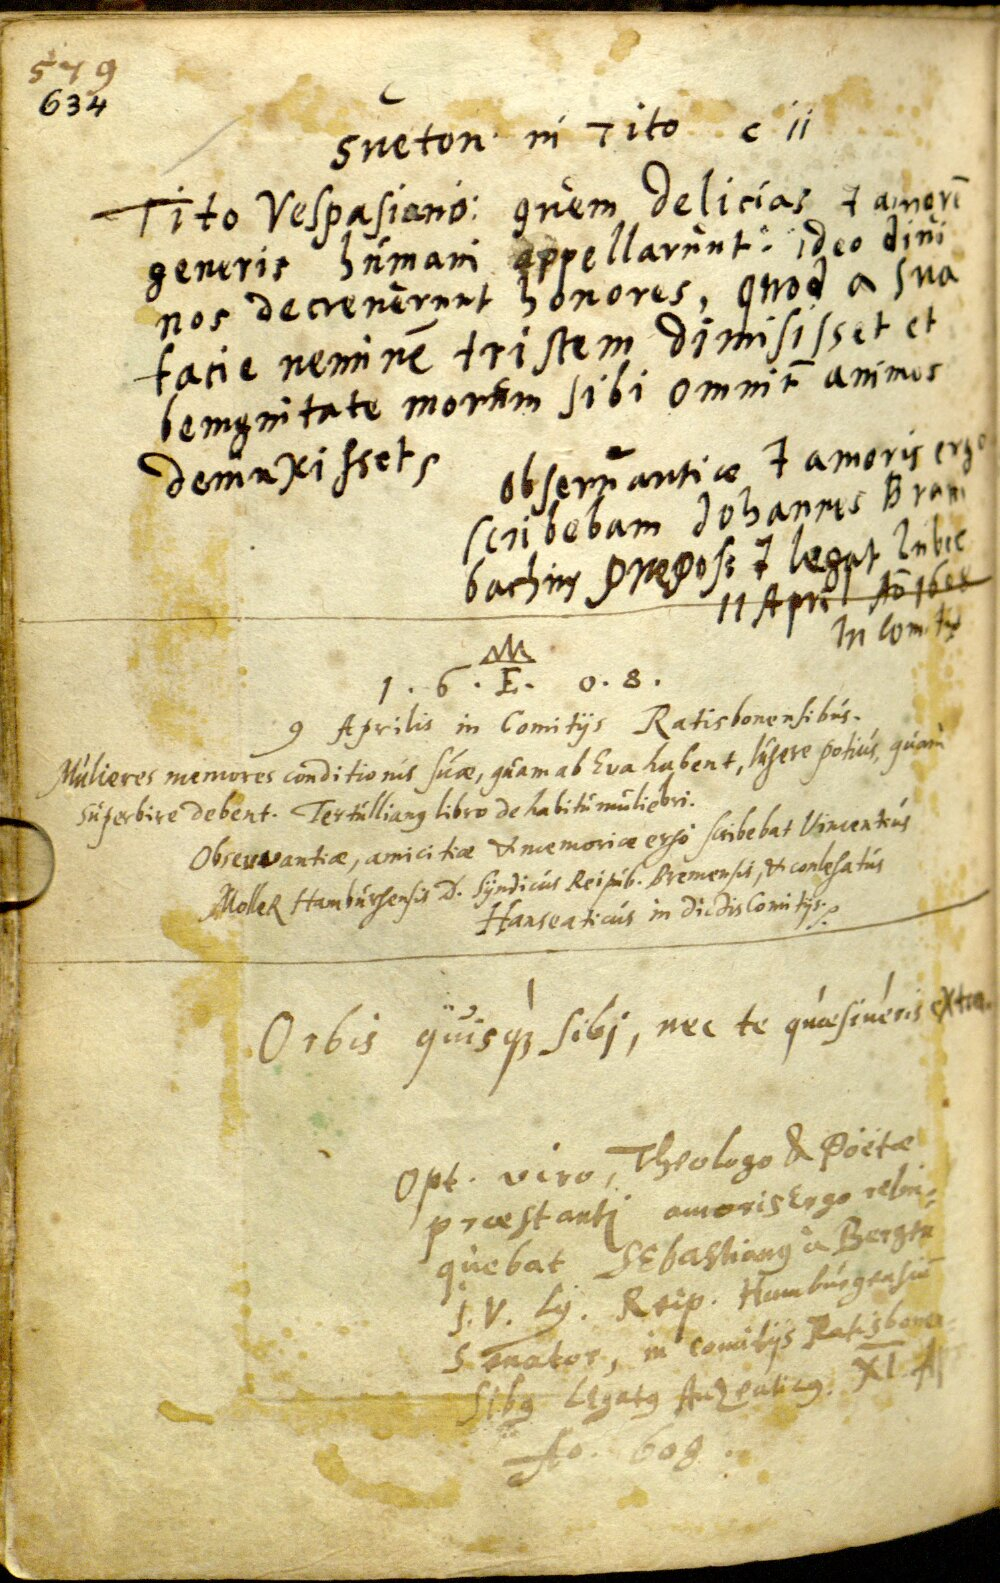 579
634
Sueton. in Tito c ii
Tito Vespasiano: quem delicias & amorē
generis humani appellarunt: ideo divi
nos decreverunt honores, quod a sua
facie neminē tristem dimisisset et
benignitate morum sibi omniū animos
devinxissets
observantiæ & amoris ergo
scribebam Johannes Bram
bachius & legat Lubec
11 April Aō 1608
In Comit
1 . 6 . E . 0 . 8 .
9 Aprilis in Comitijs Ratisbonensibus.
Mulieres memores conditionis suæ, quam ab Eva habent, lugere potius, quam
superbire debent. Tertullianus libro de habitu muliebri.
Observantiæ, amicitiæ & memoriæ ergo scribebat Vincentius
Moller Hamburgensis D. Syndicus Reipub. Bremensis, & conlegatus
Hanseaticus in dictis Comitijs.
Orbis quisq; sibj, nec te quæsiveris extra.
Opt. viro, Theologo & Poëtæ
præstantj amoris Ergo relin=
quebat Sebastianus a Bergen
J. V. L. Reip. Hamburgensis
Senator, in comitijs Ratisbonen=
sibus Legatus Anseaticus. XI. Ap
Ao. 608.